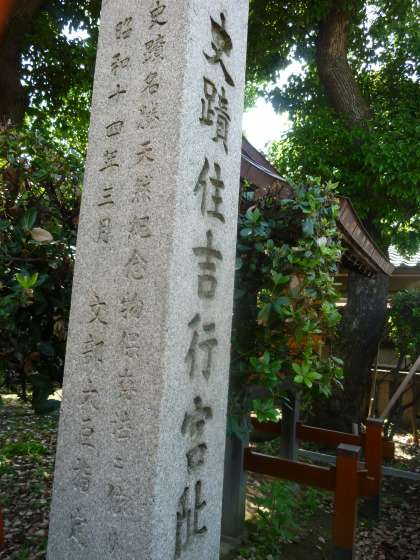 史蹟住吉行宮阯
史蹟名勝天然紀念物保存法ニ依リ
昭和十四年三月 文部大臣指定